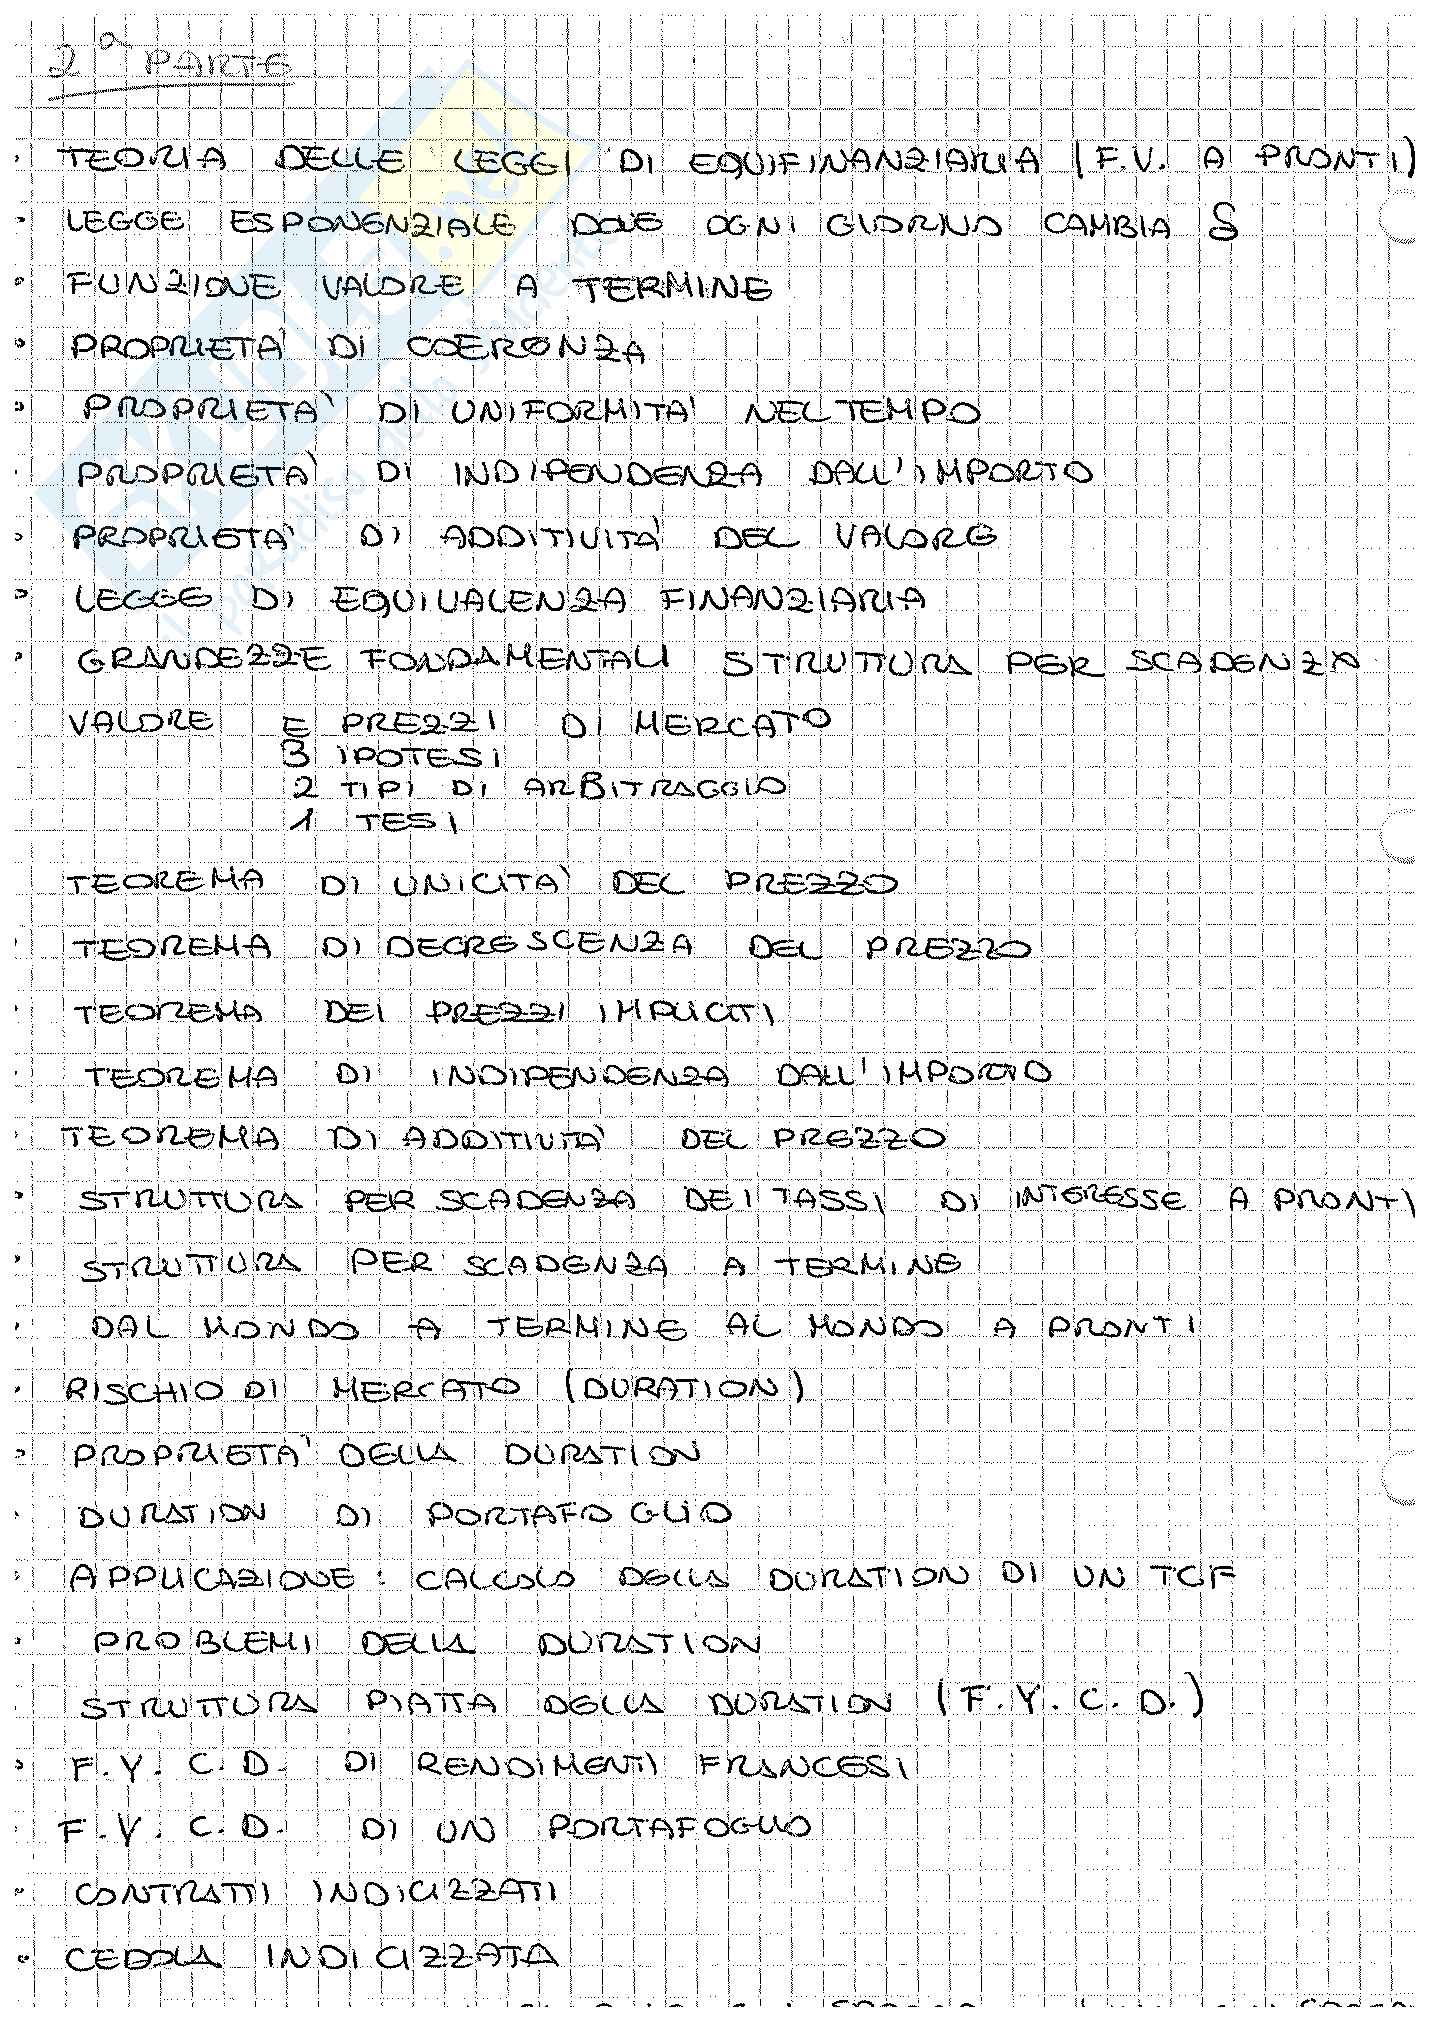 2ª PARTE
• TEORIA DELLE LEGGI DI EQUIFINANZIARIA (F.V. A PRONTI)
• LEGGE ESPONENZIALE DOVE OGNI GIORNO CAMBIA δ
• FUNZIONE VALORE A TERMINE
• PROPRIETA' DI COERENZA
• PROPRIETA' DI UNIFORMITA' NEL TEMPO
• PROPRIETA' DI INDIPENDENZA DALL'IMPORTO
• PROPRIETA' DI ADDITIVITA' DEL VALORE
• LEGGE DI EQUIVALENZA FINANZIARIA
• GRANDEZZE FONDAMENTALI STRUTTURA PER SCADENZA
VALORE E PREZZI DI MERCATO
3 IPOTESI
2 TIPI DI ARBITRAGGIO
1 TESI
TEOREMA DI UNICITA' DEL PREZZO
• TEOREMA DI DECRESCENZA DEL PREZZO
• TEOREMA DEI PREZZI IMPLICITI
• TEOREMA DI INDIPENDENZA DALL'IMPORTO
• TEOREMA DI ADDITIVITA' DEL PREZZO
• STRUTTURA PER SCADENZA DEI TASSI DI INTERESSE A PRONTI
• STRUTTURA PER SCADENZA A TERMINE
• DAL MONDO A TERMINE AL MONDO A PRONTI
• RISCHIO DI MERCATO (DURATION)
• PROPRIETA' DELLA DURATION
• DURATION DI PORTAFOGLIO
• APPLICAZIONE: CALCOLO DELLA DURATION DI UN TCF
• PROBLEMI DELLA DURATION
STRUTTURA PIATTA DELLA DURATION (F.Y.C.D.)
• F.Y.C.D. DI RENDIMENTI FRANCESI
• F.Y.C.D. DI UN PORTAFOGLIO
• CONTRATTI INDICIZZATI
• CEDOLA INDICIZZATA